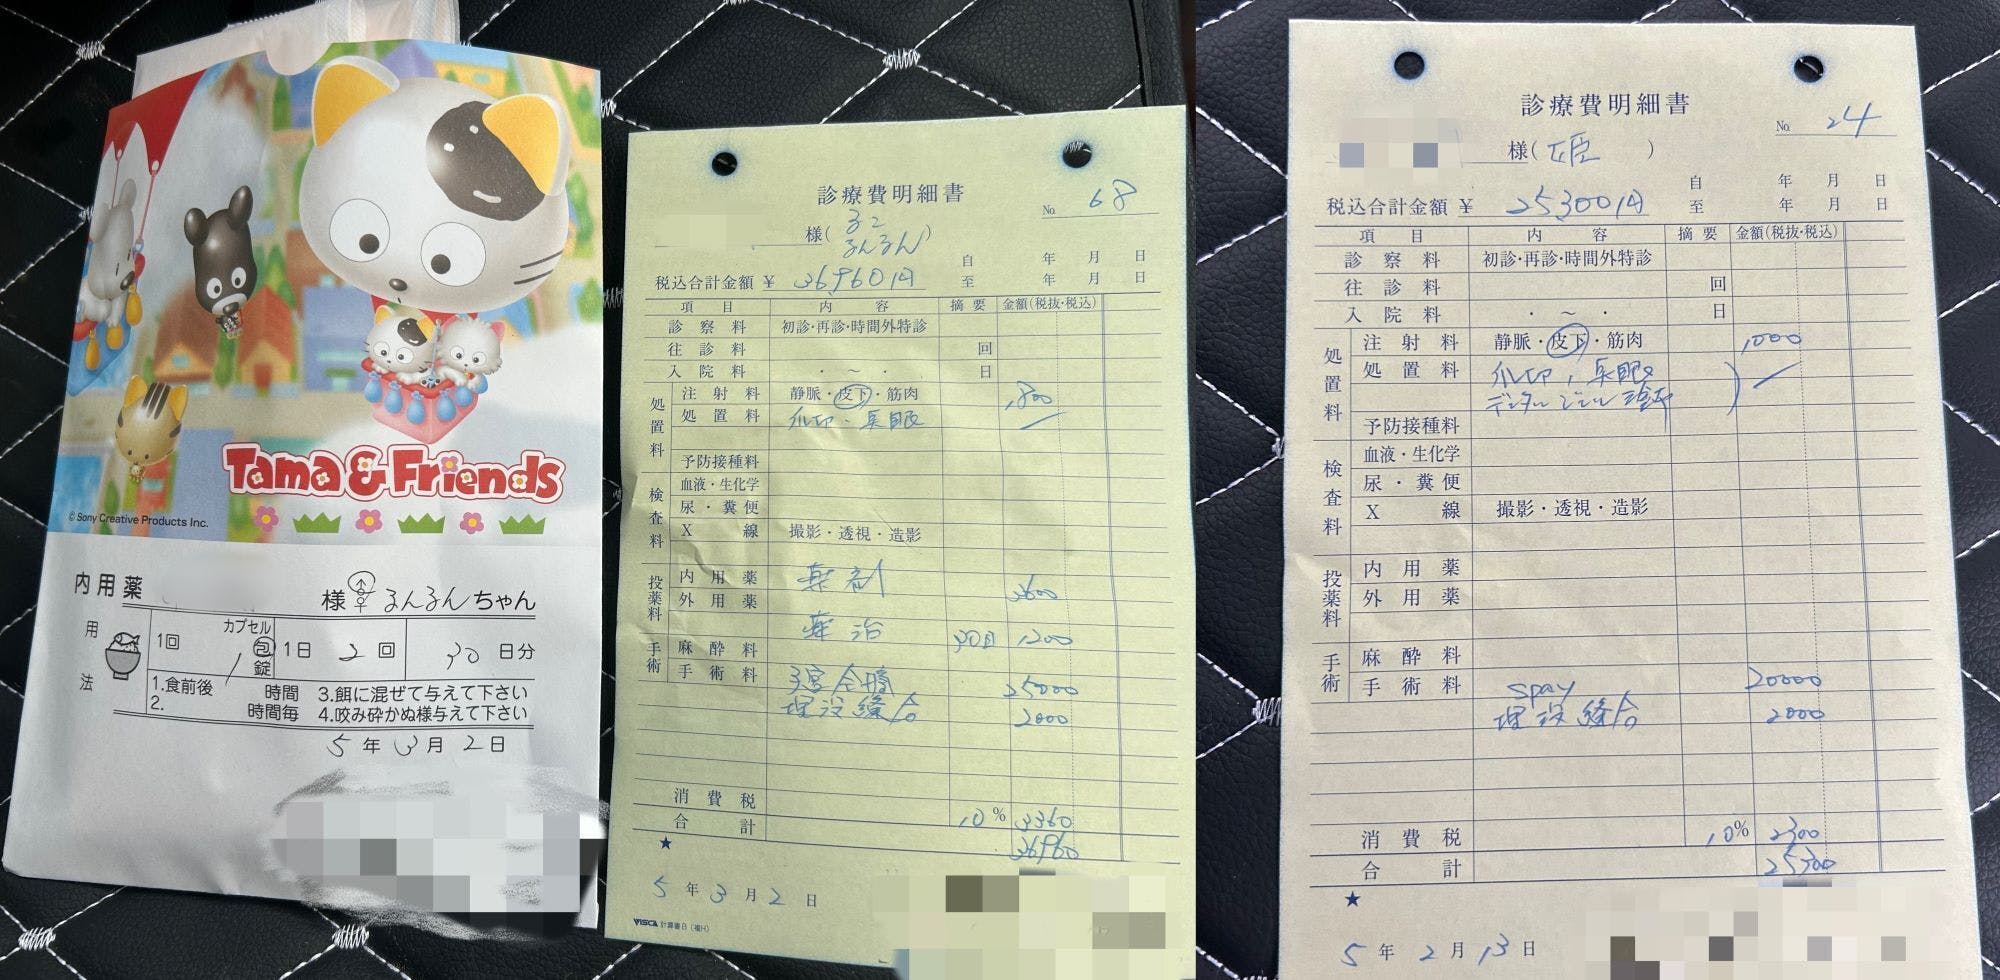 Tama & Friends
© Sony Creative Products Inc.
内用薬 様 るんるんちゃん
用法
1回 1 カプセル 包 錠 1日 2 回 30 日分
1.食前後 時間 3.餌に混ぜて与えて下さい
2. 時間毎 4.咬み砕かぬ様与えて下さい
5 年 3 月 2 日
診療費明細書
No. 68
様( るんるん )
税込合計金額 ¥ 36,960円
自 年 月 日
至 年 月 日
項目 内容 摘要 金額(税抜・税込)
診察料 初診・再診・時間外特診
往診料 回
入院料 ・ ~ ・ 日
処置料
注射料 静脈・皮下・筋肉 1,800
処置料 爪切・点眼
予防接種料
検査料
血液・生化学
尿・糞便
X線 撮影・透視・造影
投薬料
内用薬 3600
外用薬
30日 1200
手術
麻酔料
手術料 25000
埋没縫合 2000
消費税 10% 3360
合計 36960
★
5 年 3 月 2 日
VISCA 計算書B(複H)
診療費明細書
No. 24
様( 姫 )
税込合計金額 ¥ 25300円
自 年 月 日
至 年 月 日
項目 内容 摘要 金額(税抜・税込)
診察料 初診・再診・時間外特診
往診料 回
入院料 ・ ~ ・ 日
処置料
注射料 静脈・皮下・筋肉 1,000
処置料 爪切, 点眼
デンタルジェル
予防接種料
検査料
血液・生化学
尿・糞便
X線 撮影・透視・造影
投薬料
内用薬
外用薬
手術
麻酔料
手術料 spay 20000
埋没縫合 2000
消費税 10% 2300
合計 25300
★
5 年 2 月 13 日